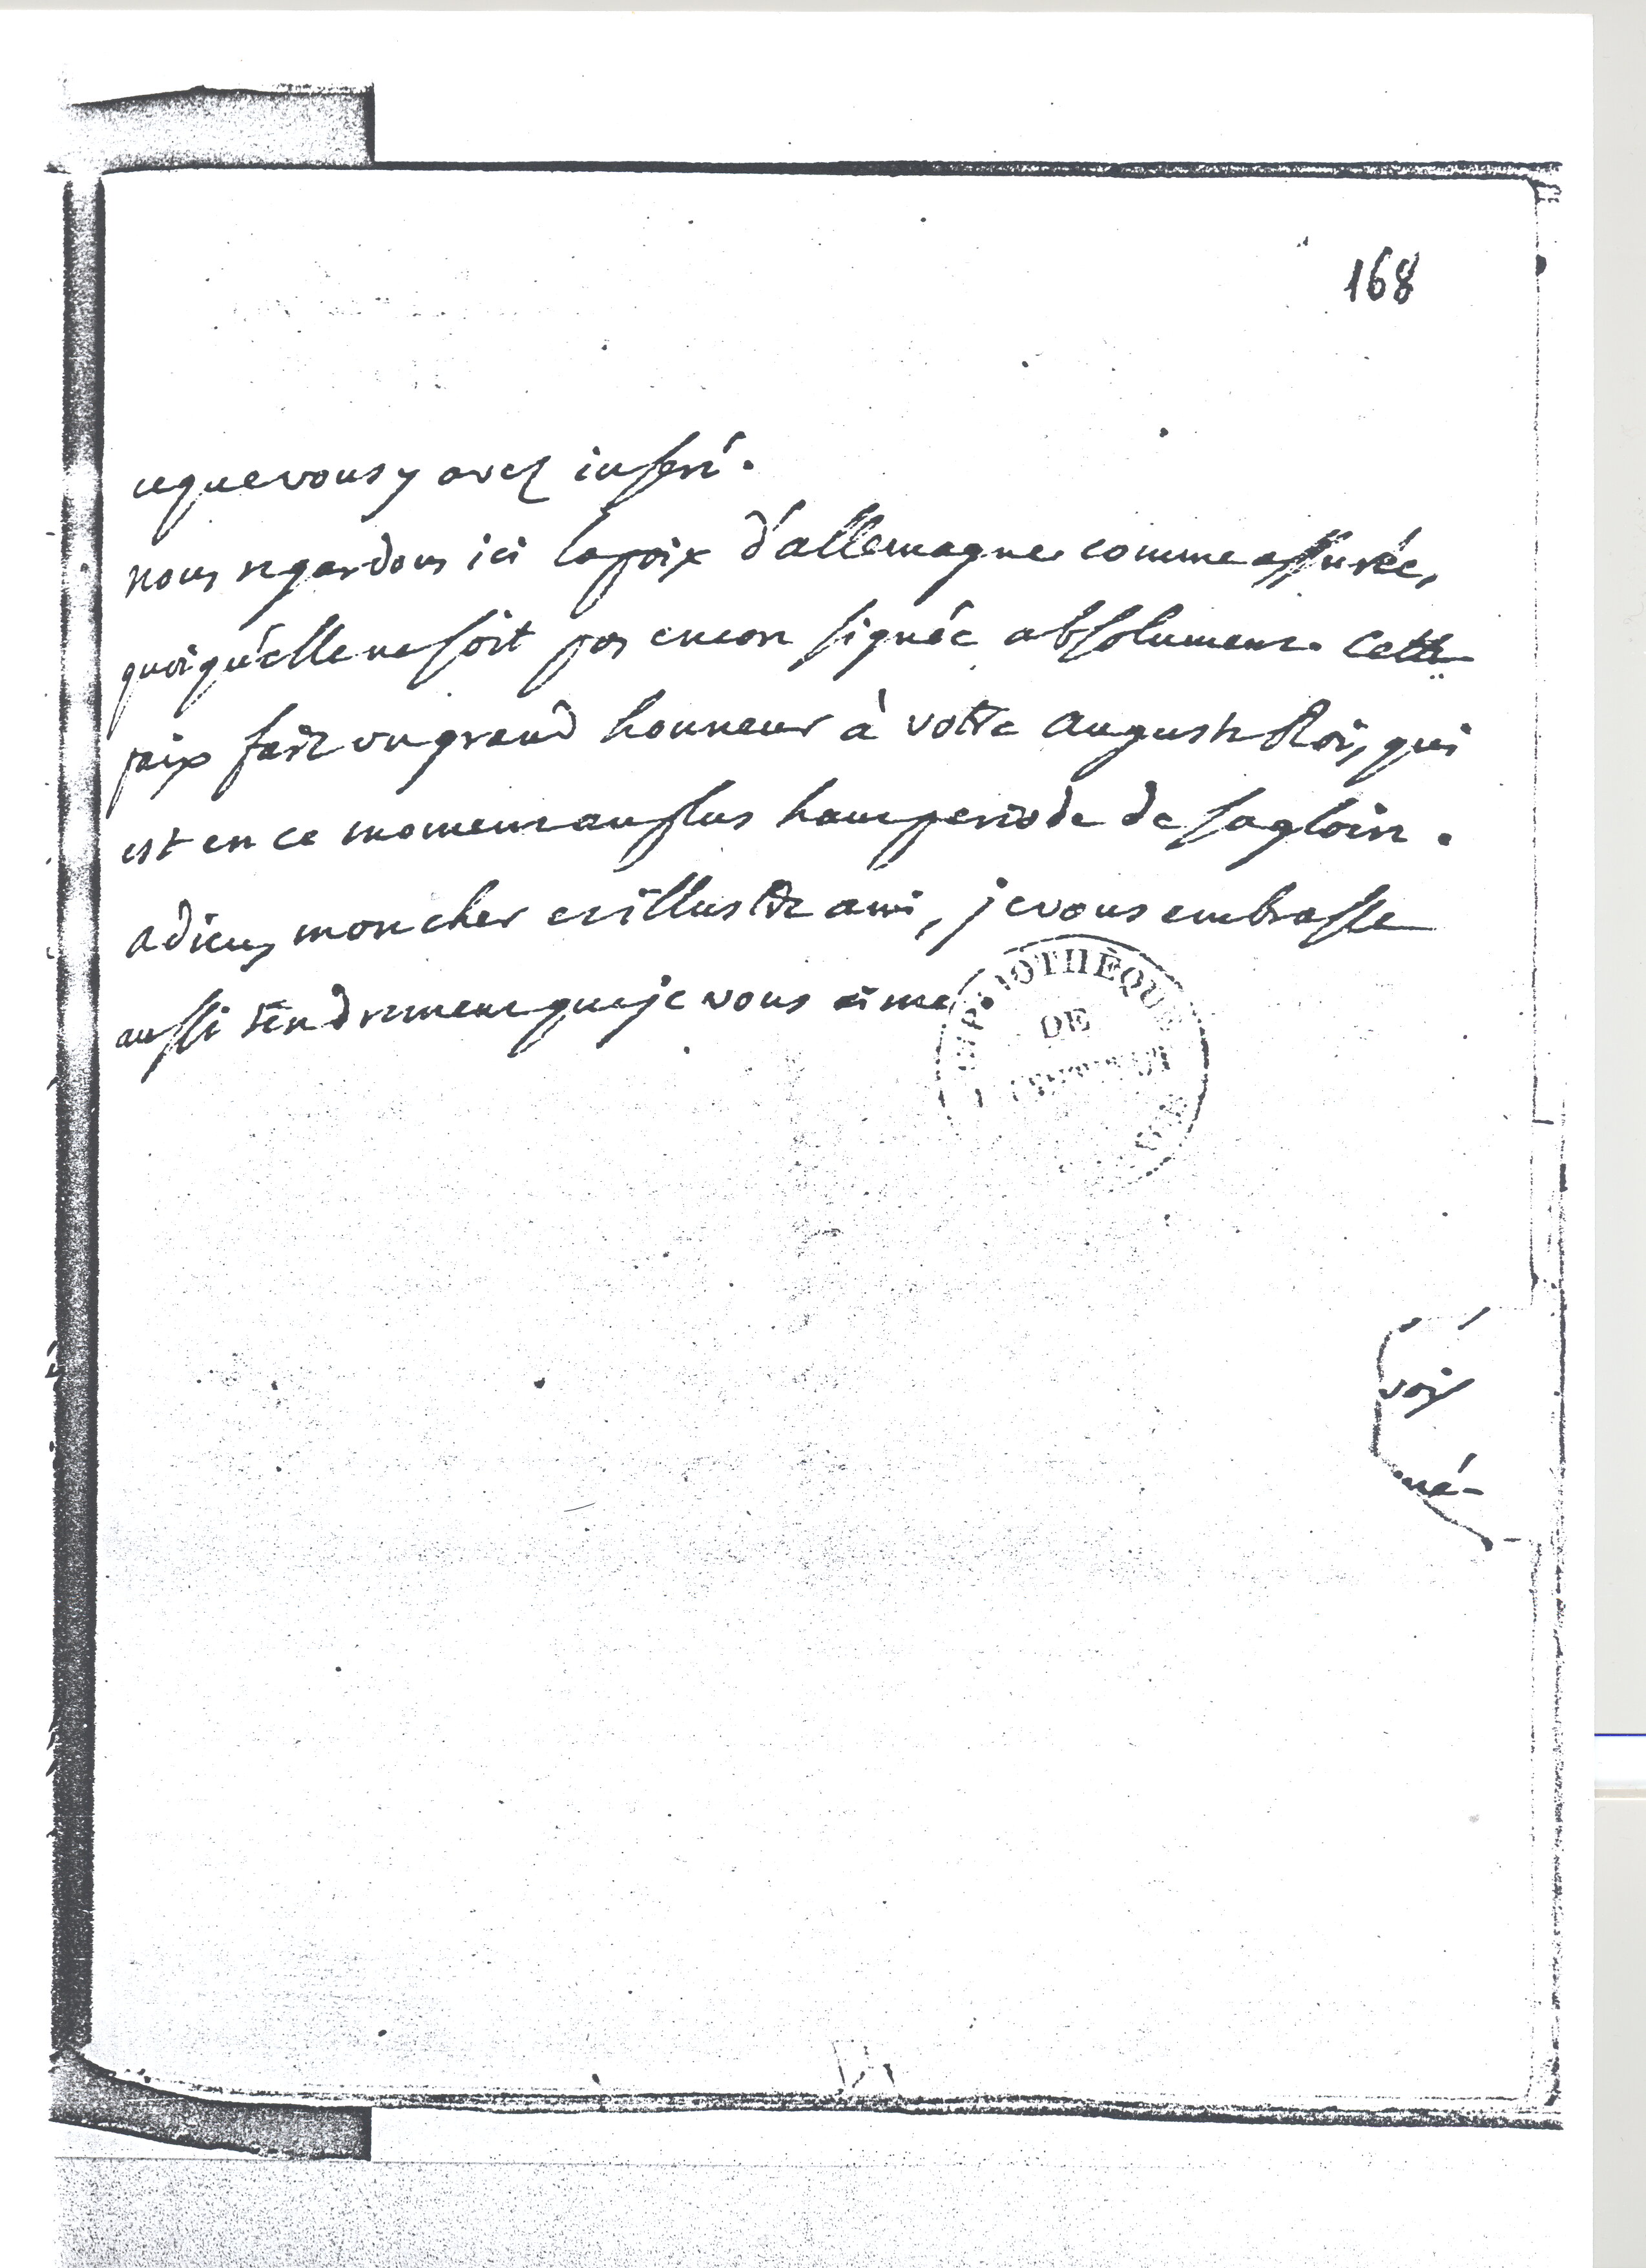 168
ce que vous y avez inseré.
nous regardons ici la paix d'allemagne comme assurée,
quoiqu'elle ne soit pas encore signée absolument. Cette
paix fait un grand honneur à votre auguste Roi, qui
est en ce moment au plus haut periode de sa gloire.
adieu, mon cher et illustre ami, je vous embrasse
aussi tendrement que je vous aime.
BIBLIOTHÈQUE
DE
voir
mé-